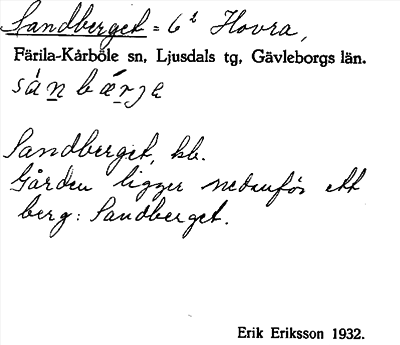 Sandberget = 6² Hovra,
Färila-Kårböle sn, Ljusdals tg, Gävleborgs län.
sánbærjɐ
Sandberget, bb.
Gården ligger nedanför ett
berg: Sandberget.
Erik Eriksson 1932.